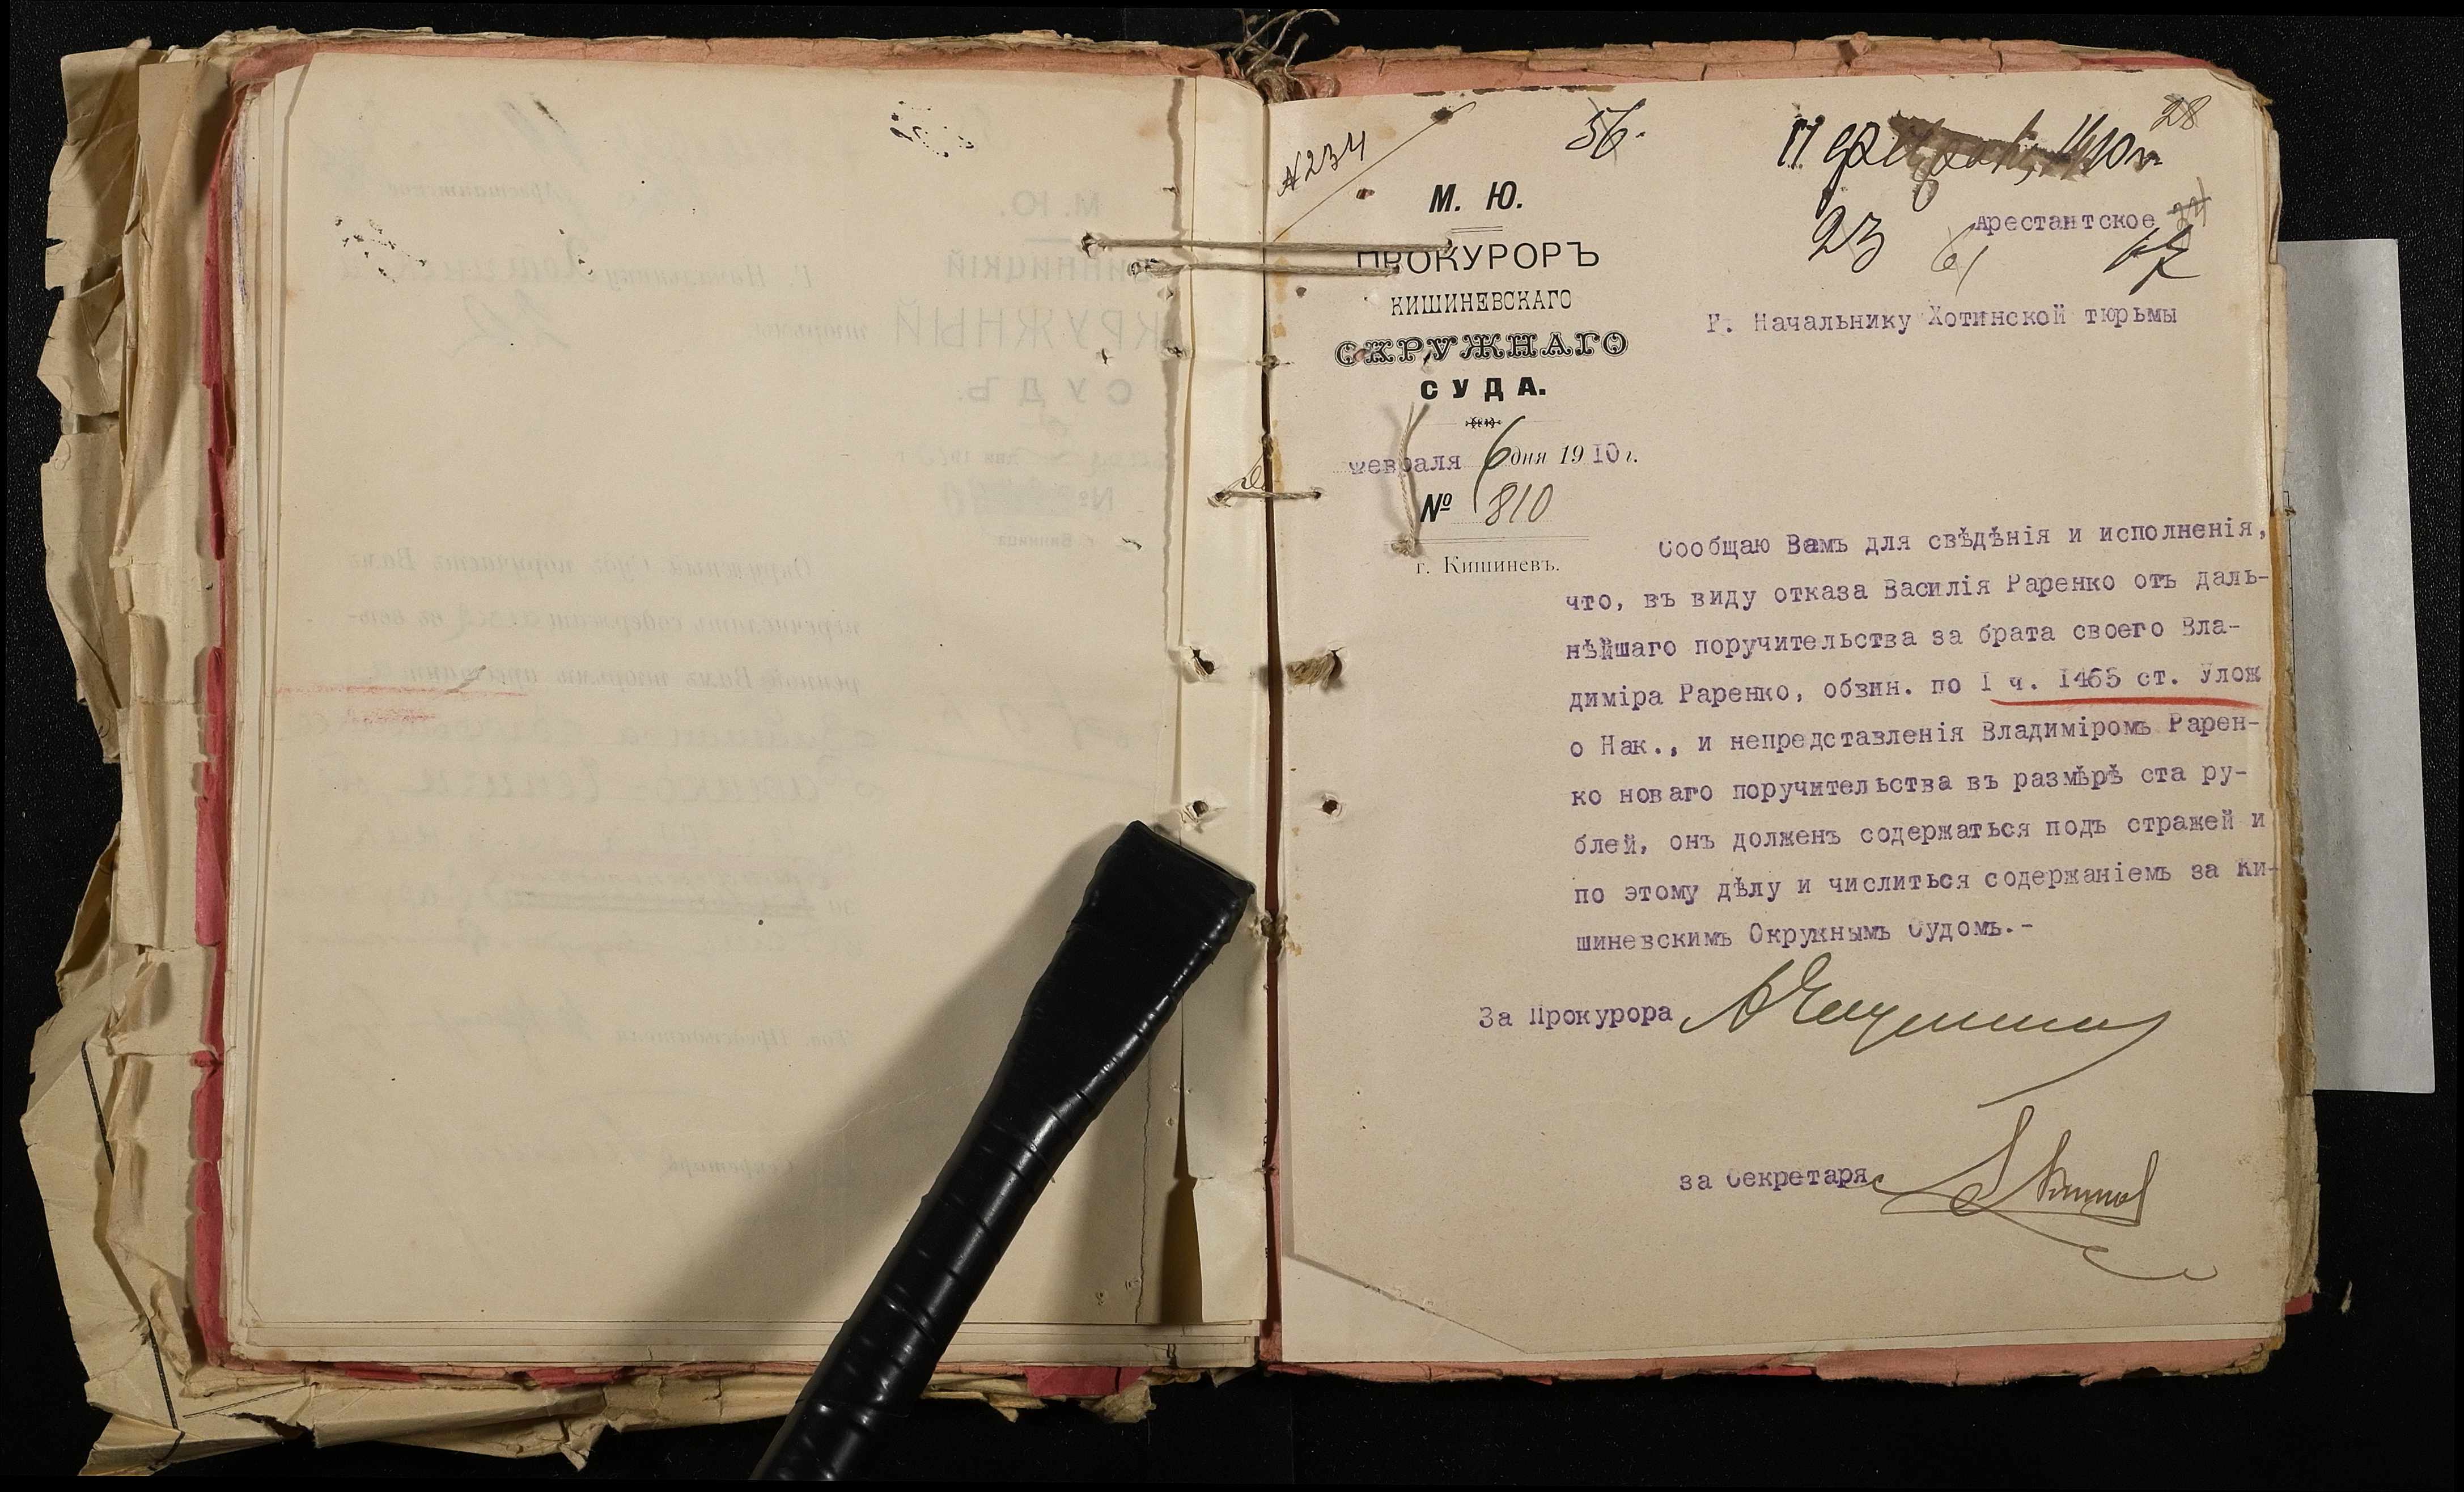 №234
56.
28
17 февраля 1910 г.
23
61
Арестантское
24
67
М. Ю.
ПРОКУРОРЪ
КИШИНЕВСКАГО
ОКРУЖНАГО
СУДА.
Февраля 6 дня 1910 г.
№ 810
г. Кишиневъ.
Г. Начальнику Хотинской тюрьмы
Сообщаю Вамъ для свѣдѣнія и исполненія,
что, въ виду отказа Василія Раренко отъ даль-
нѣйшаго поручительства за брата своего Вла-
диміра Раренко, обвин. по I ч. 1465 ст. Улож
о Нак., и непредставленія Владиміромъ Рарен-
ко новаго поручительства въ размѣрѣ ста ру-
блей, онъ долженъ содержаться подъ стражей и
по этому дѣлу и числиться содержаніемъ за Ки-
шиневскимъ Окружнымъ Судомъ.-
За Прокурора
за Секретаря